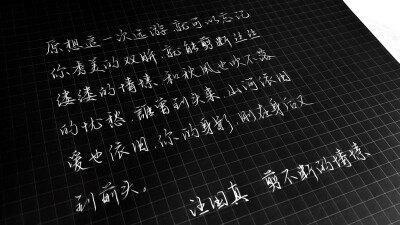 原想这一次远游 就可以忘记
你秀美的双眸 就能剪断丝丝
缕缕的情愫 和秋风也吹不落
的忧愁 谁曾到头来 山河依旧
爱也依旧 你的身影 刚在身后又
到前头。
汪国真 剪不断的情愫